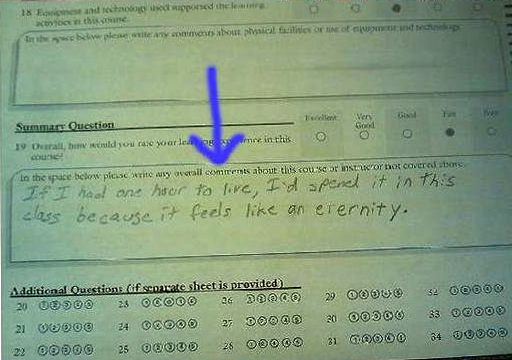 18 Equipment and technology used supported the learning
activities in this course.
In the space below please write any comments about physical facilities or use of equipment and technology.
Summary Question
Excellent Very Good Good Fair Poor
19 Overall, how would you rate your learning experience in this
course?
In the space below please write any overall comments about this course or instructor not covered above.
If I had one hour to live, I'd spend it in this
class because it feels like an eternity.
Additional Questions (if separate sheet is provided)
20 1 2 3 4 5 23 1 2 3 4 5 26 1 2 3 4 5 29 1 2 3 4 5 32 1 2 3 4 5
21 1 2 3 4 5 24 1 2 3 4 5 27 1 2 3 4 5 30 1 2 3 4 5 33 1 2 3 4 5
22 1 2 3 4 5 25 1 2 3 4 5 28 1 2 3 4 5 31 1 2 3 4 5 34 1 2 3 4 5